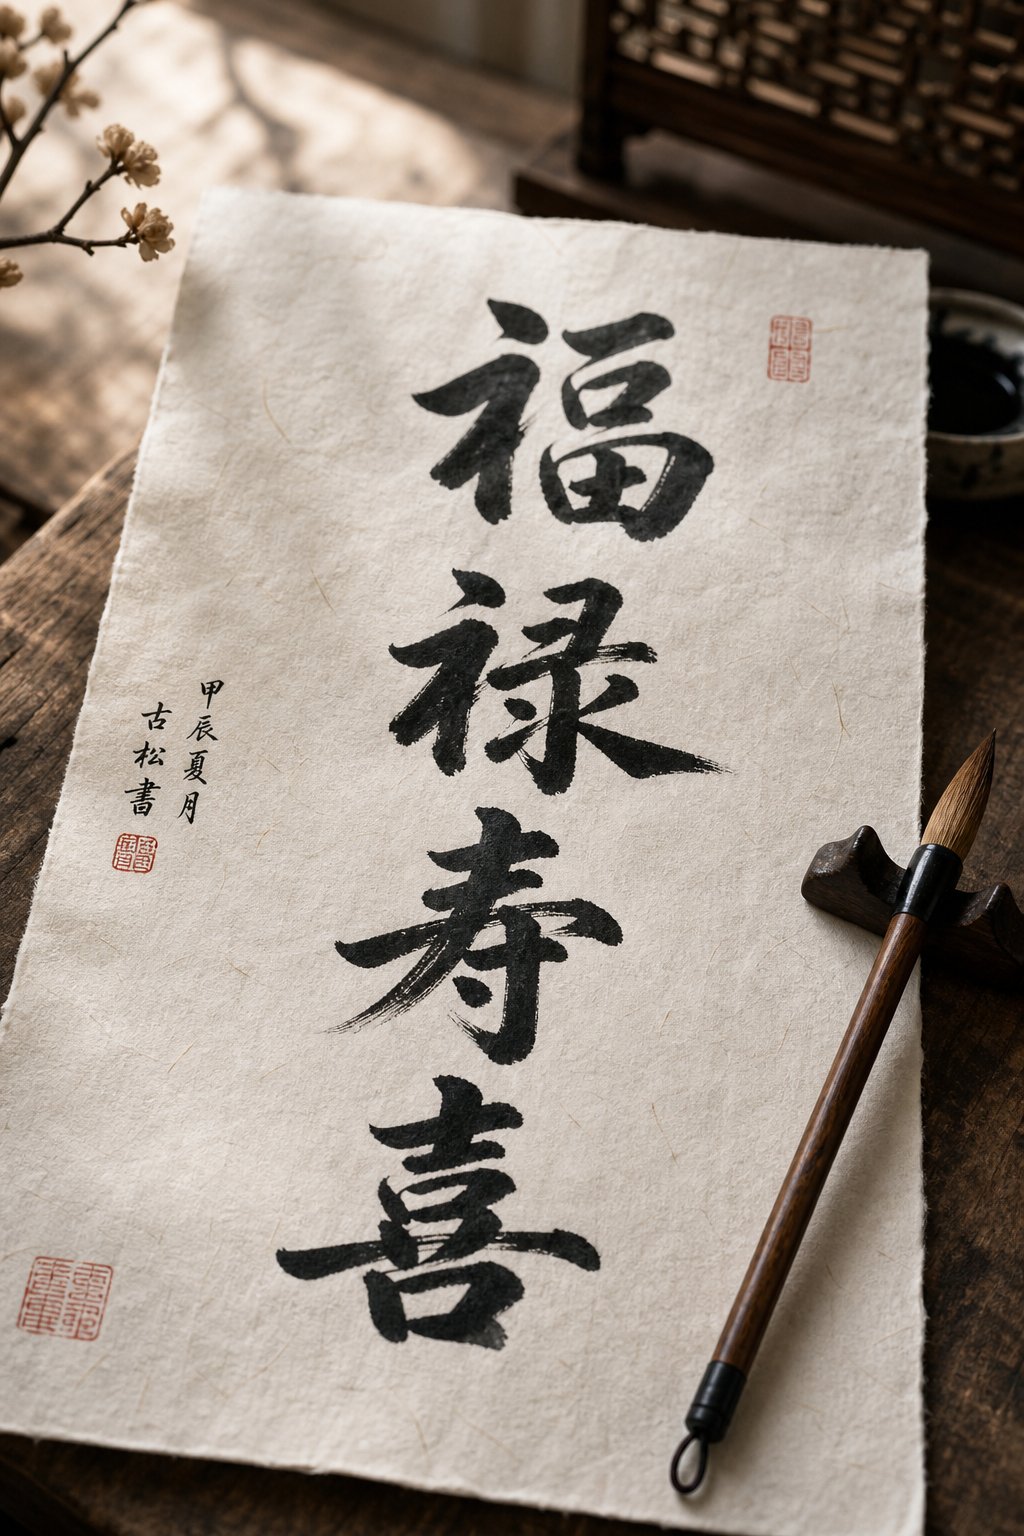 福禄寿喜
甲辰夏月
古松書